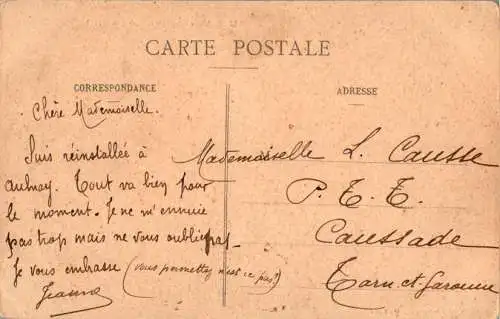 CARTE POSTALE
CORRESPONDANCE
ADRESSE
Chère Mademoiselle.
Suis réinstallée à
aulnay. Tout va bien pour
le moment. Je ne m'ennuie
pas trop mais ne vous oublie pas.
Je vous embrasse (vous permettez n'est ce pas?)
Jeanne
Mademoiselle L. Causse
P. T. T.
Caussade
Tarn et Garonne